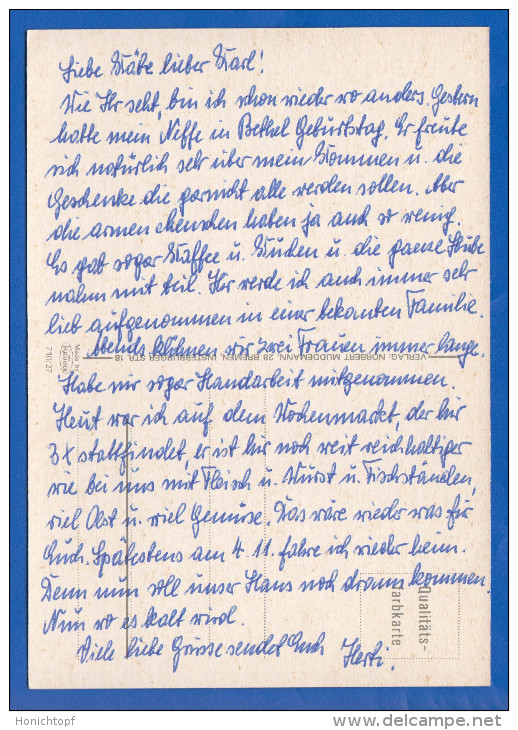 Liebe Käte lieber Karl!
Wie Ihr seht, bin ich schon wieder wo anders. Gestern
hatte mein Neffe in Bethel Geburtstag. Er freute
sich natürlich sehr über mein Kommen u. die
Geschenke die garnicht alle werden sollen. Aber
die armen Menschen haben ja auch so wenig.
Es gab sogar Kaffee u. Kuchen u. die ganze Stube
nahm mit teil. Hier werde ich auch immer sehr
lieb aufgenommen in einer bekannten Familie.
Abends klöhnen wir zwei Frauen immer lange.
Habe mir sogar Handarbeit mitgenommen.
Heut war ich auf dem Wochenmarkt, der hier
3x stattfindet, er ist hier noch weit reichhaltiger
wie bei uns mit Fleisch u. Wurst u. Fischständen,
viel Obst u. viel Gemüse. Das wäre wieder was für
Euch. Spätestens am 4.11. fahre ich wieder heim.
Denn nun soll unser Haus noch drann kommen.
Nun wo es kalt wird.
Viele liebe Grüsse sendet Euch Herti.
VERLAG: NORBERT MUDDEMANN, 28 BREMEN, INSTERBURGER STR. 18
Made by
Krüger
710/27
Qualitäts-
Farbkarte
Honichtopf
www.delcampe.net